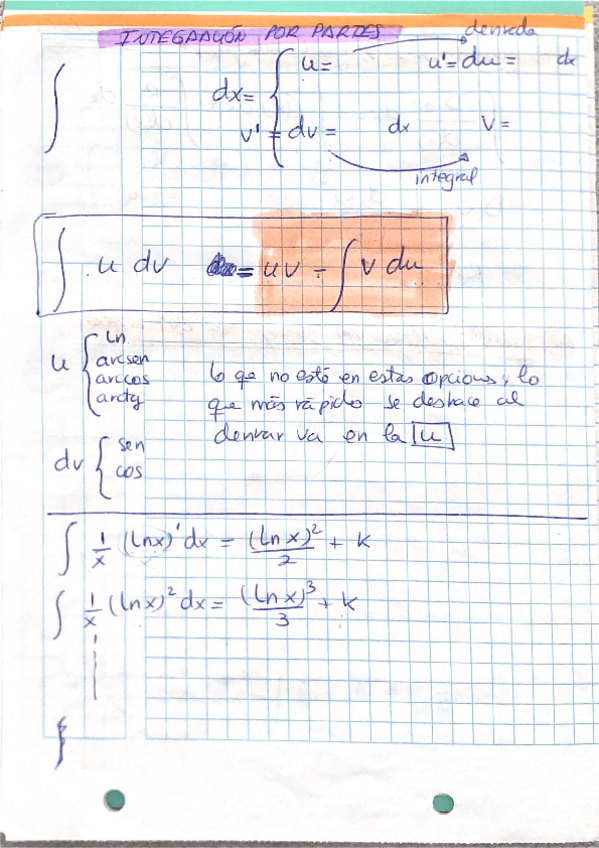 INTEGRACIÓN POR PARTES
derivada
∫ dx= { u= u'= du = dx
v' = dv = dx v=
integral
∫ u dv = uv - ∫ v du
u { ln
arcsen
arccos
arctg
lo qe no esté en estas opcions, lo
que más rápido se deshace al
derivar va en la u
dv { sen
cos
∫ 1/x (lnx)¹ dx = (ln x)²/2 + k
∫ 1/x (ln x)² dx = (ln x)³/3 + k
∫